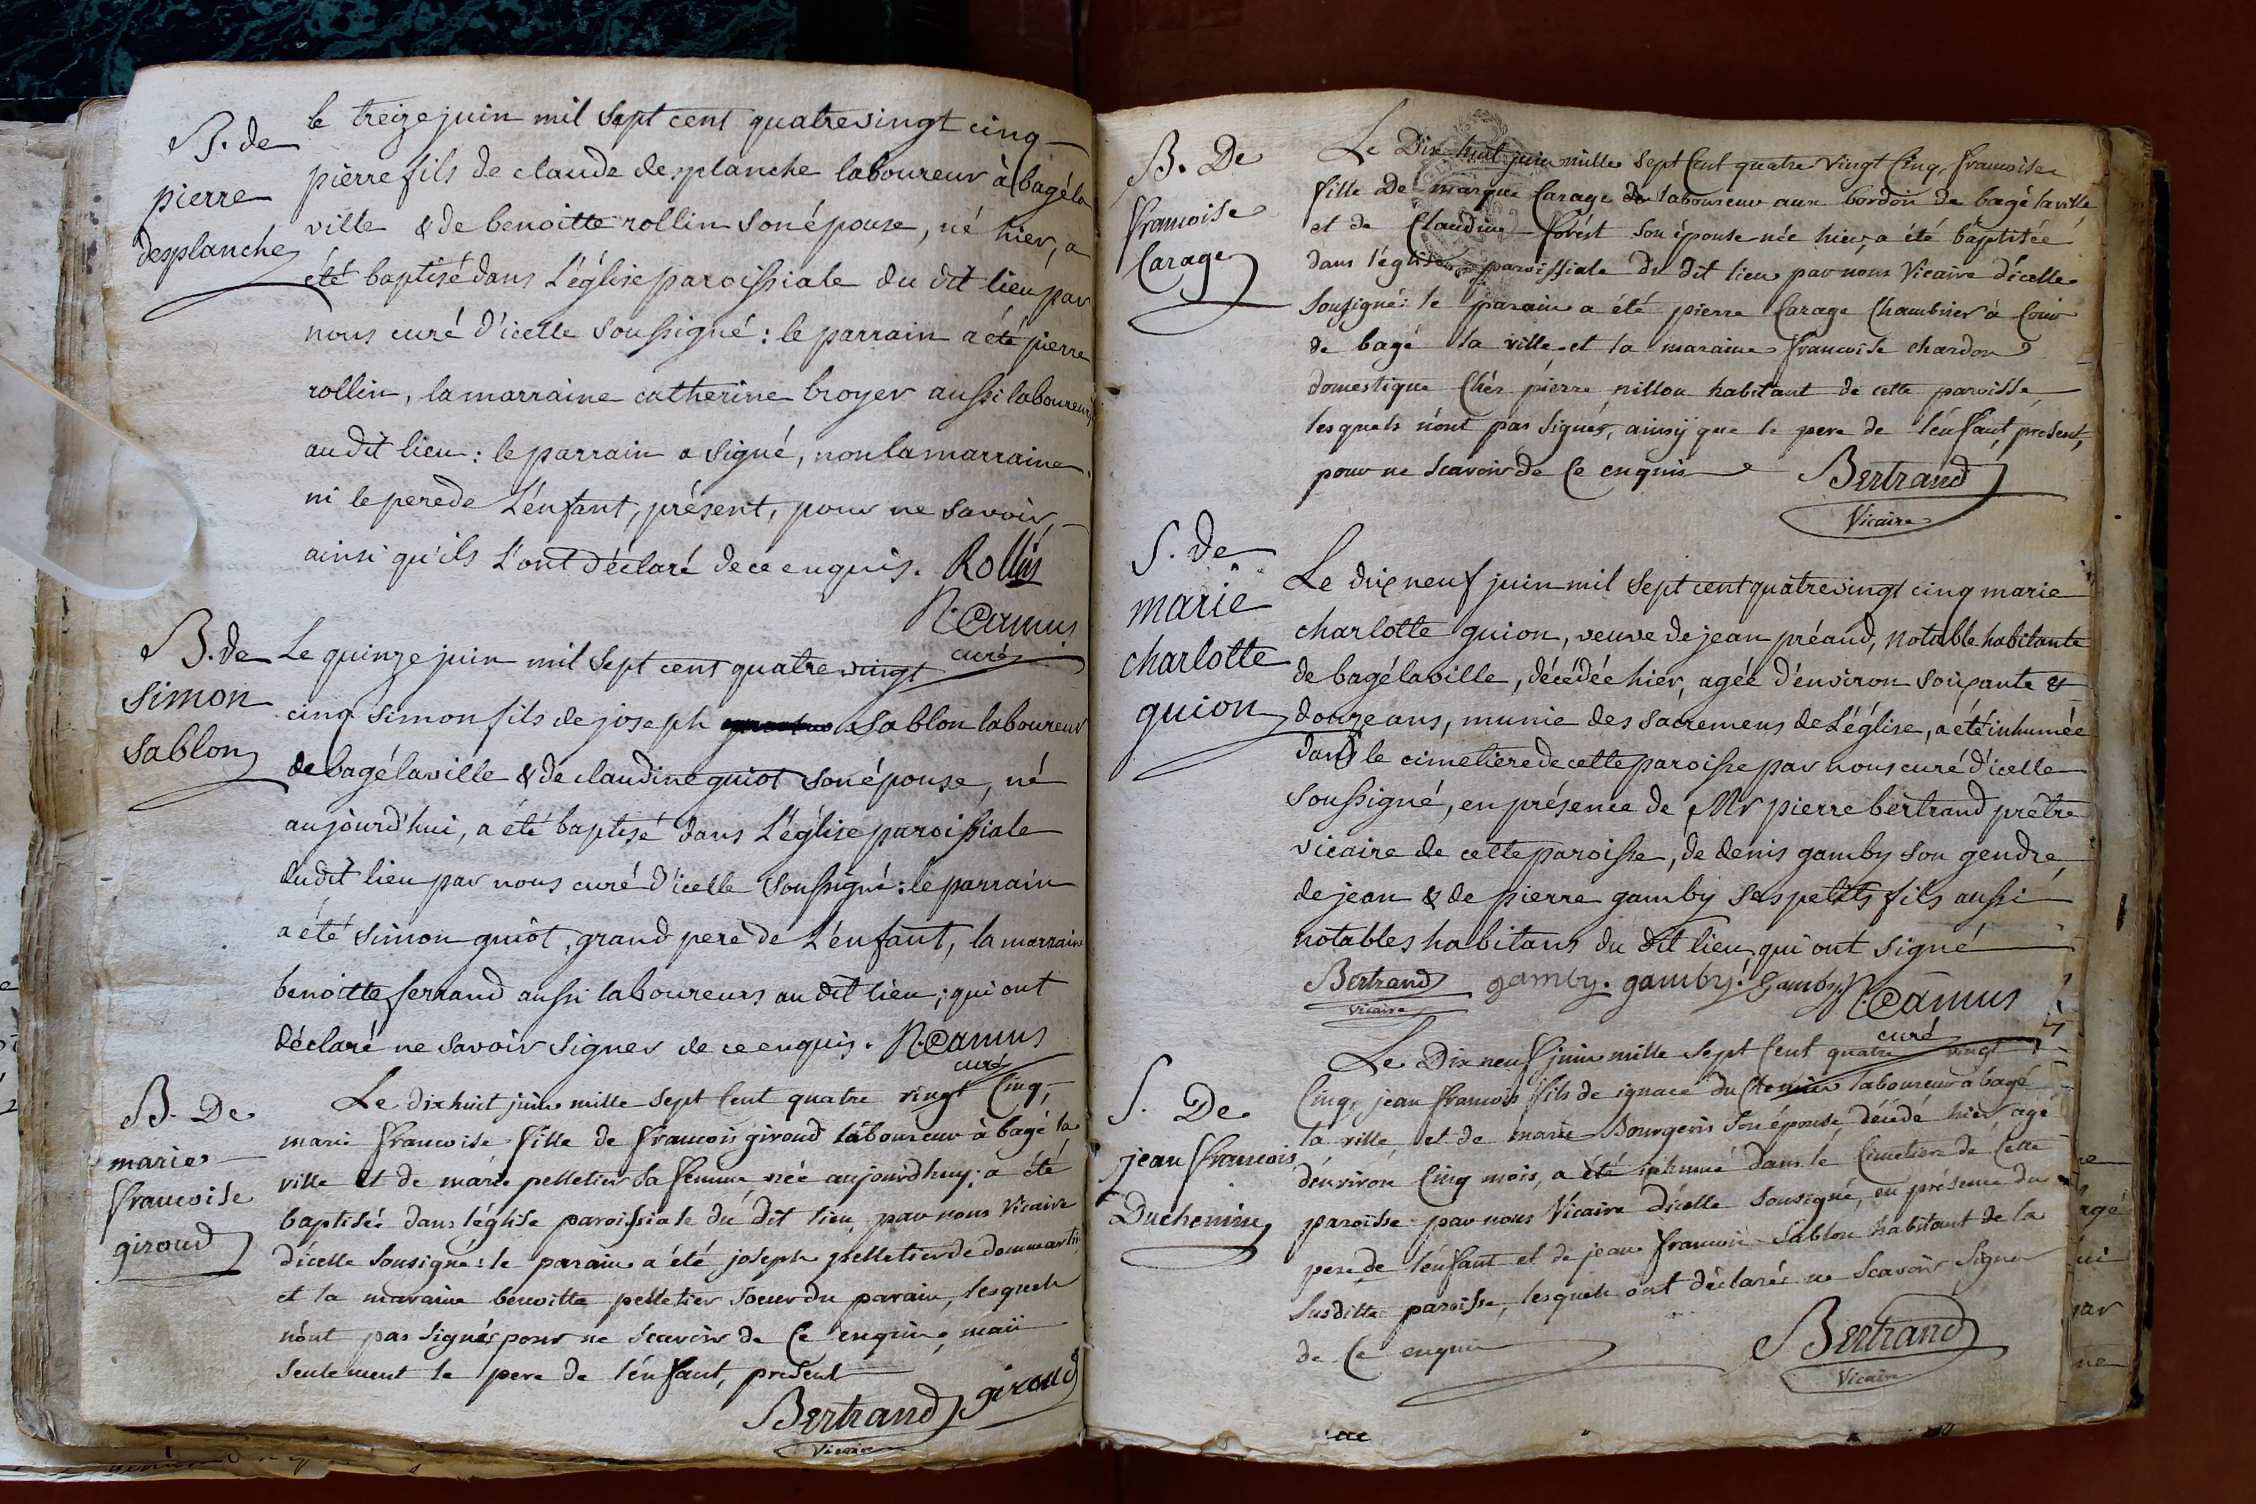 B. de
pierre
desplanche
le treize juin mil sept cent quatre vingt cinq
pierre fils de claude desplanche laboureur à bagé la
ville & de benoitte rollin son épouse, né hier, a
été baptisé dans L'église paroissiale du dit lieu par
nous curé d'icelle soussigné : le parrain a été pierre
rollin, la marraine catherine broyer aussi laboureurs
au dit lieu : le parrain a signé, non la marraine
ni le pere de L'enfant, présent, pour ne savoir,
ainsi qu'ils L'ont déclaré de ce enquis. Rollin
N. Camus
curé
B. de
simon
sablon
Le quinze juin mil sept cent quatre vingt
cinq simon fils de joseph sablon laboureur
de bagé la ville & de claudine guiot son épouse, né
aujourd'hui, a été baptisé dans L'église paroissiale
du dit lieu par nous curé d'icelle soussigné : le parrain
a été simon guiot, grand pere de L'enfant, la marraine
benoitte ferrand aussi laboureurs au dit lieu ; qui ont
déclaré ne savoir signer de ce enquis. N. Camus
curé
B. De
marie
francoise
giroud
Le dix huit juin mille sept Cent quatre vingt Cinq,
marie francoise fille de francois giroud laboureur à bagé la
ville et de marie pelletier sa femme née aujourdhuy, a été
baptisée dans léglise paroissiale du dit lieu par nous Vicaire
d'icelle sousigné : le parain a été joseph pelletier de dommartin
et la maraine benoitte pelletier soeur du parain, lesquels
n'ont pas signés pour ne scavoir de Ce enquis, mais
seulement le pere de l'énfant, present
Bertrand giroud
Vicaire
B. De
francoise
Carage
Le Dix huit juin mille sept Cent quatre vingt Cinq, francoise
fille de marque Carage laboureur aux bordon de bagé la ville
et de Claudine forêst son épouse née hier, a été baptisée
dans l'église paroissiale du dit lieu par nous Vicaire d'icelle
sousigné : le parain a été pierre Carage Chambrier à Couir
de bagé la ville et la maraine francoise chardon
domestique Chés pierre nillon habitant de cette paroisse
lesquels n'ont pas signés, ainsy que le pere de l'énfant, présent,
pour ne scavoir de Ce enquis Bertrand
Vicaire
S. de
marie
charlotte
guion
Le dix neuf juin mil sept cent quatre vingt cinq marie
charlotte guion, veuve de jean préaud, notable habitante
de bagé la ville, décédée hier, agée d'environ soixante &
douze ans, munie des sacremens de L'église, a été inhumée
dans le cimetiere de cette paroisse par nous curé d'icelle
soussigné, en présence de Mr pierre bertrand prêtre
vicaire de cette paroisse, de denis gamby son gendre,
de jean & de pierre gamby ses petits fils aussi
notables habitans du dit lieu, qui ont signé
Bertrand gamby. gamby. Gamby N. Camus
vicaire curé
S. De
jean francois
Duchemin
Le Dix neuf juin mille sept Cent quatre vingt
Cinq, jean francois fils de ignace du Chemin laboureur a bagé
la ville et de marie Bourgeois son épouse, décédé hier agé
d'énviron Cinq mois, a été inhumé dans le Cimetiere de Cette
paroisse par nous Vicaire d'icelle sousigné, en présence du
pere de l'énfant et de jean francois Sablon habitant de la
susditte paroisse, lesquels ont déclarés ne scavoir signer
de Ce enquis
Bertrand
Vicaire